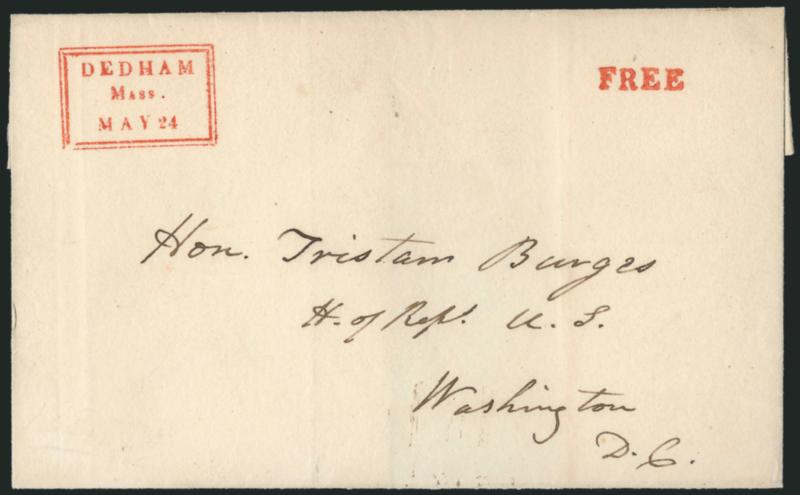 DEDHAM
MASS.
MAY 24
FREE
Hon. Tristam Burges
H. of Rep.s U. S.
Washington
D. C.